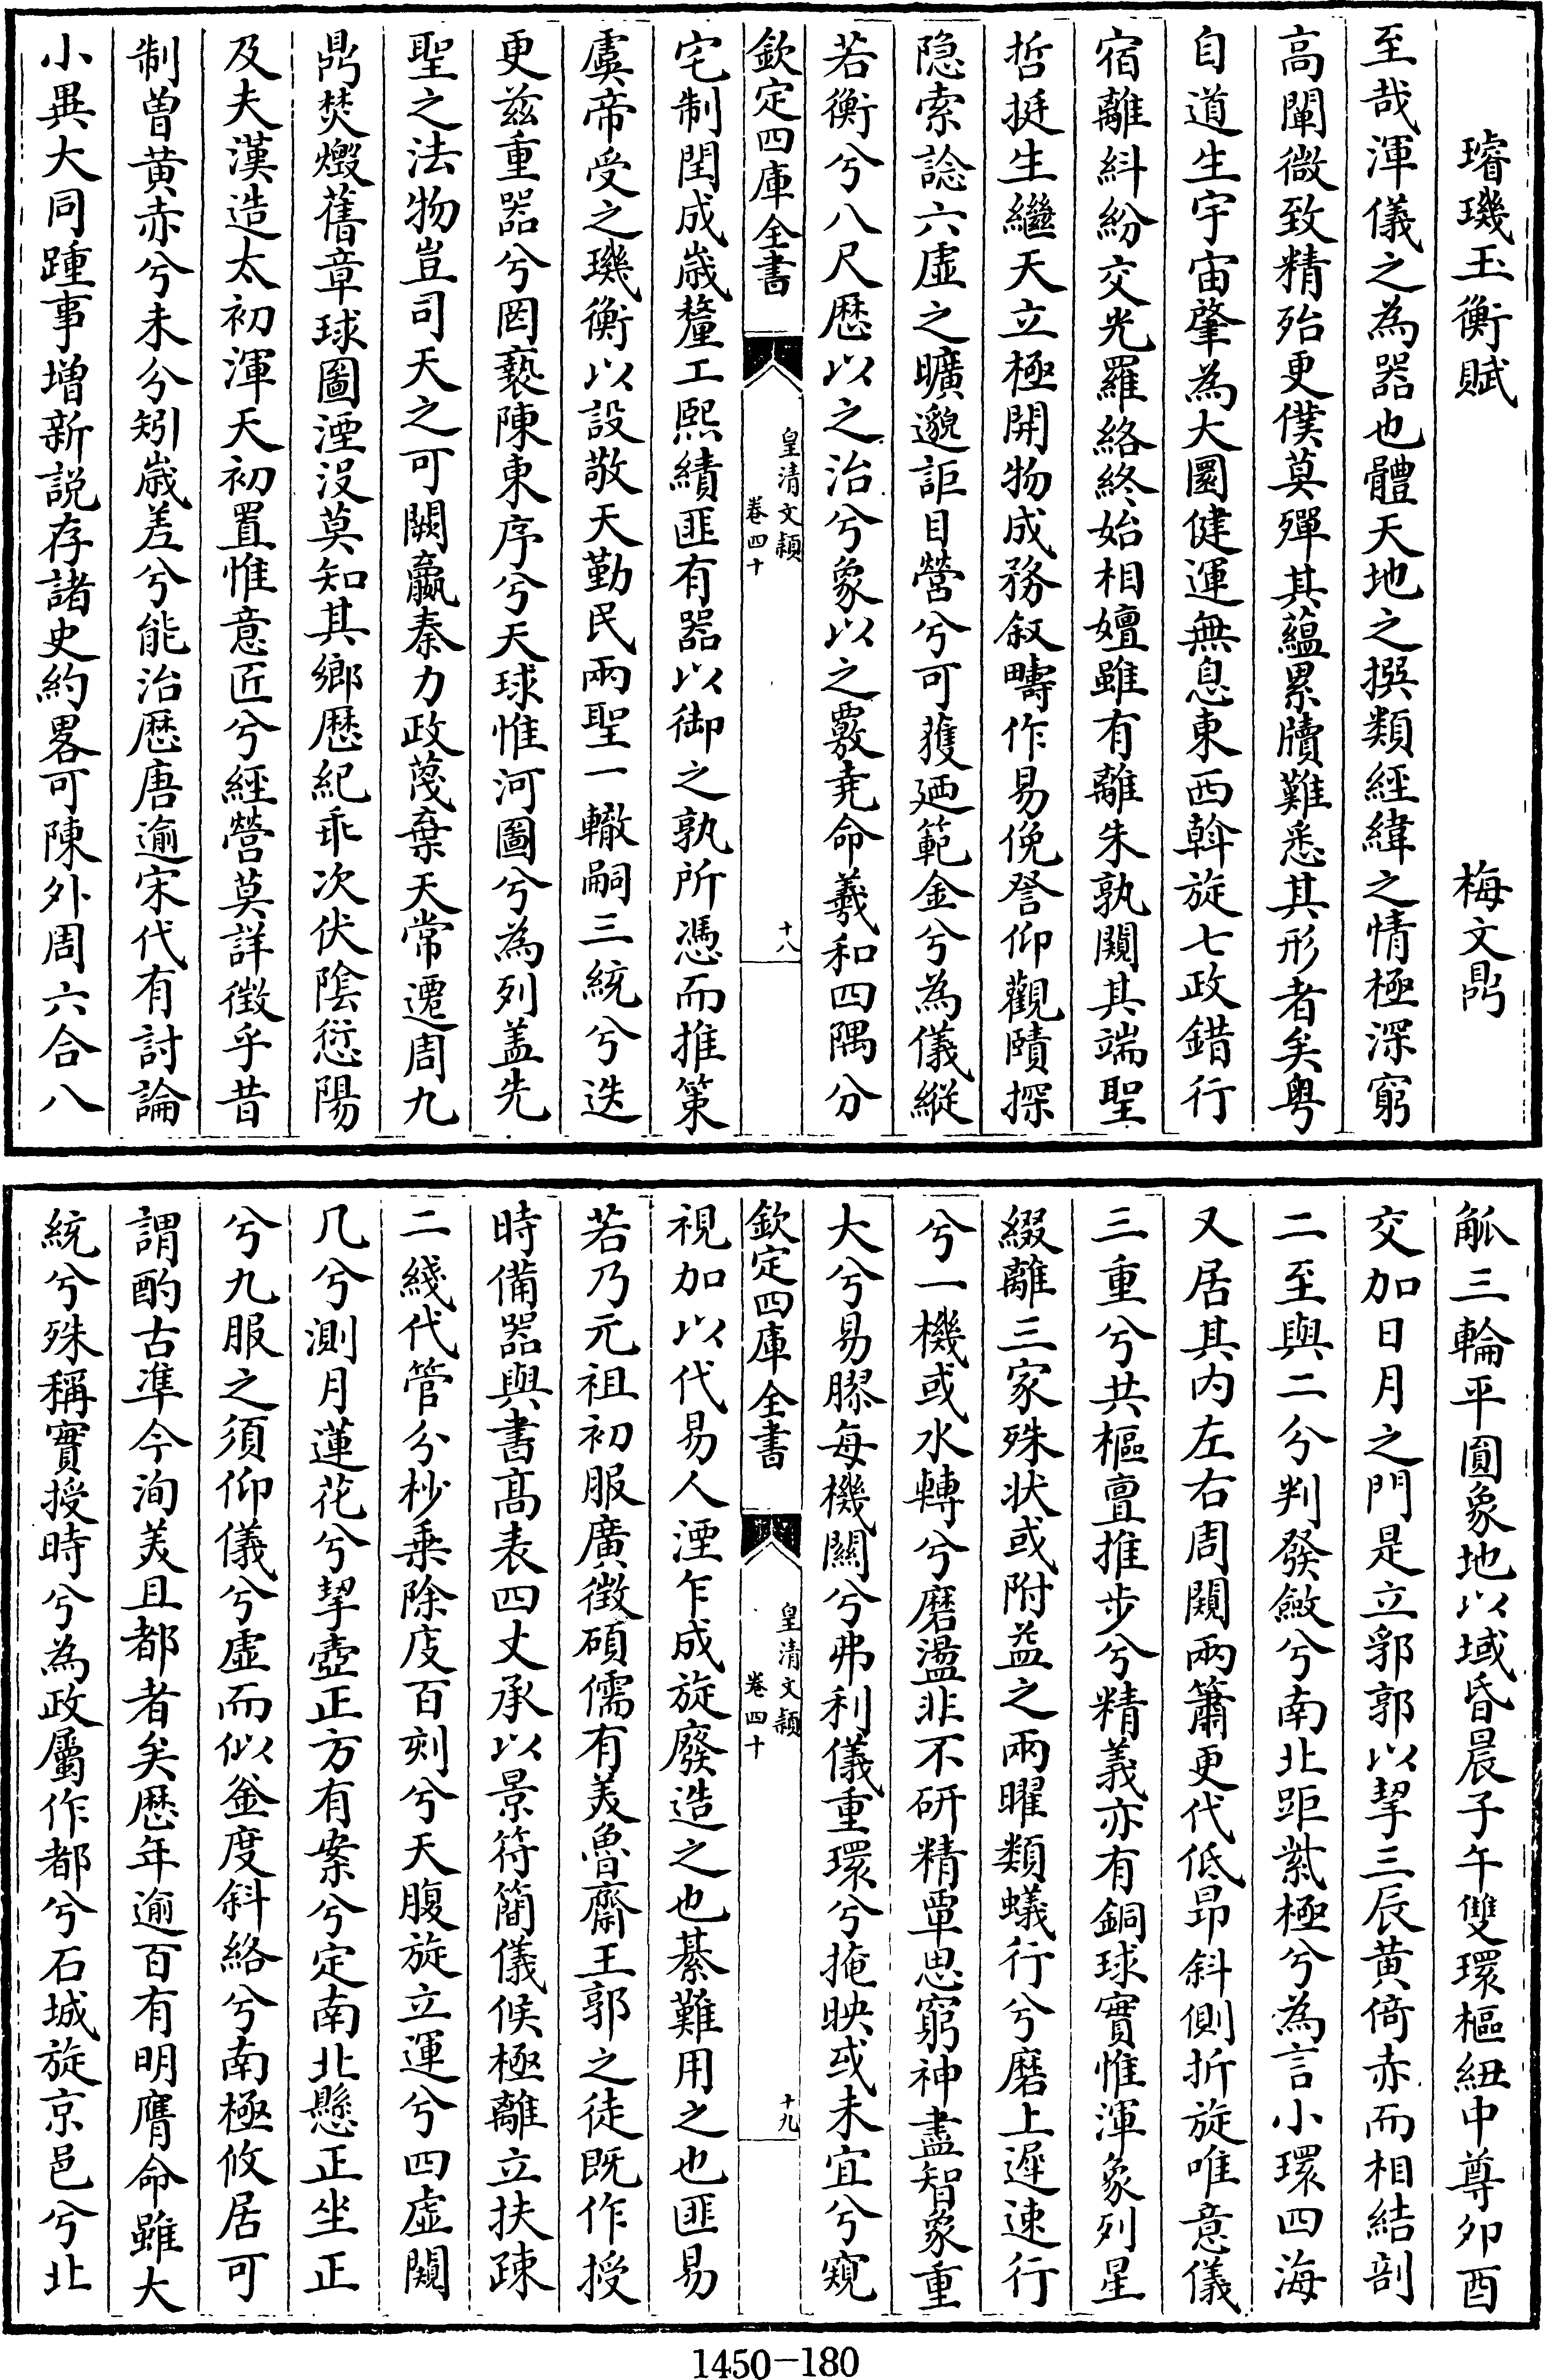 璿璣玉衡賦　梅文鼎
至哉渾儀之為器也體天地之撰類經緯之情極深窮
高闡微致精殆更僕莫殫其蘊累牘難悉其形者矣粤
自道生宇宙肇為大圜健運無息東西斡旋七政錯行
宿離糾紛交光羅絡終始相嬗雖有離朱孰闚其端聖
哲挺生繼天立極開物成務叙疇作易俛詧仰觀賾探
隐索諗六虛之曠邈詎目營兮可獲廼範金兮為儀縱
若衡兮八尺厯以之治兮象以之覈尭命羲和四隅分
欽定四庫全書
皇清文穎
卷四十
十八
宅制閏成嵗釐工熙績匪有器以御之孰所憑而推策
虞帝受之璣衡以設敬天勤民兩聖一轍嗣三統兮迭
更兹重器兮罔褻陳東序兮天球惟河圖兮為列盖先
聖之法物豈司天之可闕嬴秦力政蔑棄天常遷周九
鼎焚燬舊章球圖湮没莫知其鄉厯紀乖次伏陰愆陽
及夫漢造太初渾天初置惟意匠兮經營莫詳徵乎昔
制曽黄赤兮未分矧嵗差兮能治厯唐逾宋代有討論
小異大同踵事增新説存諸史約畧可陳外周六合八
觚三輪平圓象地以域昏晨子午雙環樞紐中尊夘酉
交加日月之門是立郛郭以挈三辰黄倚赤而相結剖
二至與二分判發斂兮南北距紫極兮為言小環四海
又居其内左右周闚兩簫更代低昂斜側折旋唯意儀
三重兮共樞亶推步兮精義亦有銅球實惟渾象列星
綴離三家殊状或附益之兩曜類蟻行兮磨上遲速行
兮一機或水轉兮磨盪非不研精覃思窮神盡智象重
大兮易膠每機關兮弗利儀重環兮掩映或未宜兮窺
欽定四庫全書
皇清文穎
卷四十
十九
視加以代易人湮乍成旋廢造之也綦難用之也匪易
若乃元祖初服廣徴碩儒有美魯齋王郭之徒既作授
時備器與書髙表四丈承以景符簡儀候極離立扶疎
二綫代管分杪乗除度百刻兮天腹旋立運兮四虛闚
几兮測月蓮花兮挈壺正方有案兮定南北懸正坐正
兮九服之須仰儀兮虛而似釡度斜絡兮南極攸居可
謂酌古凖今洵美且都者矣厯年逾百有明膺命雖大
統兮殊稱實授時兮為政屬作都兮石城旋京邑兮北
1450-180